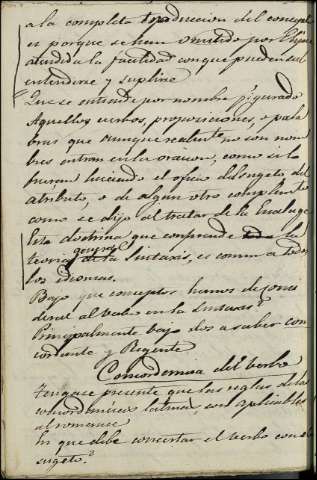 a la completa traduccion del concept
es porque se hem omitido por Elipse
atendida la facilidad con que pueden sub
entenderse y suplirse
Que se entiende por nombre figurado
Aquellos verbos, proposiciones, o pala
bras que aunque realmte no son nom
bres entran en la oracion, como si lo
fueran haciendo el oficio del sugeto, del
atributo, o de algun otro complemto
como se dijo al tratar de la Enalage
Esta doctrina que comprende toda la
teoria general de la Sintaxis, es comun a todos
los idiomas.
Bajo que conceptos hemos de consi
derar al Verbo en la Sintaxis?
Principalmente bajo dos a saber con
cordante y Regente
Concordancia del verbo
Tengase presente que las reglas de las
concordancias latinas son aplicables
al romance
En que debe concertar el verbo con el
sugeto?